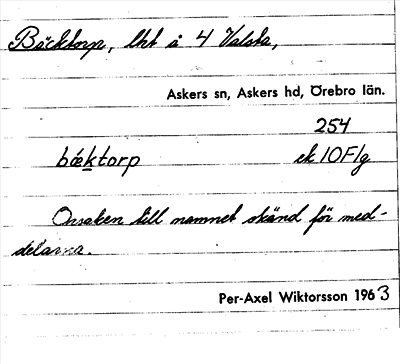 Bäcktorp, lht å 4 Valsta,
Askers sn, Askers hd, Örebro län.
254
bæktorp ek 10F1g
Orsaken till namnet okänd för med-
delarna.
Per-Axel Wiktorsson 1963